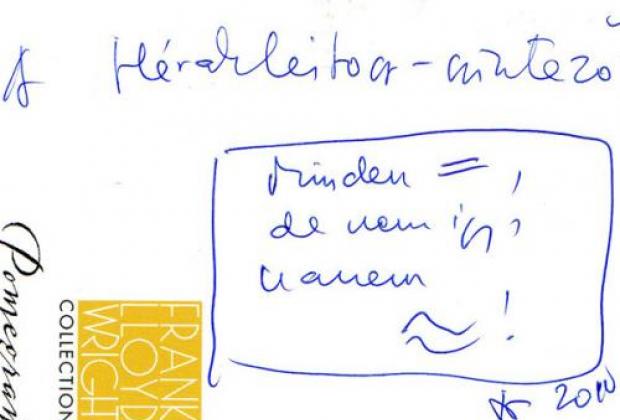 A Hérakleitosz-cintező
Minden =,
de nem így,
hanem
≈!
2010
Pomegran
FRANK
LLOYD
WRIGHT
COLLECTION